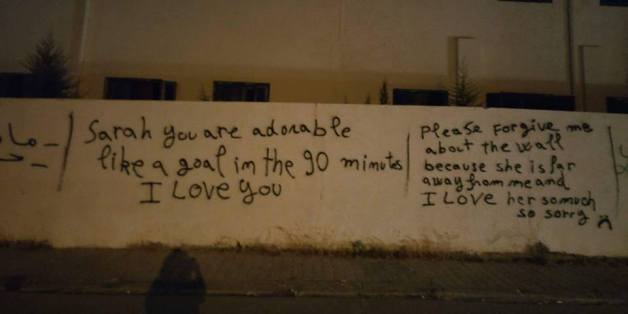 Sarah you are adorable
like a goal in the 90 minutes
I Love you
Please Forgive me
about the wall
because she is far
away from me and
I Love her so much
so sorry